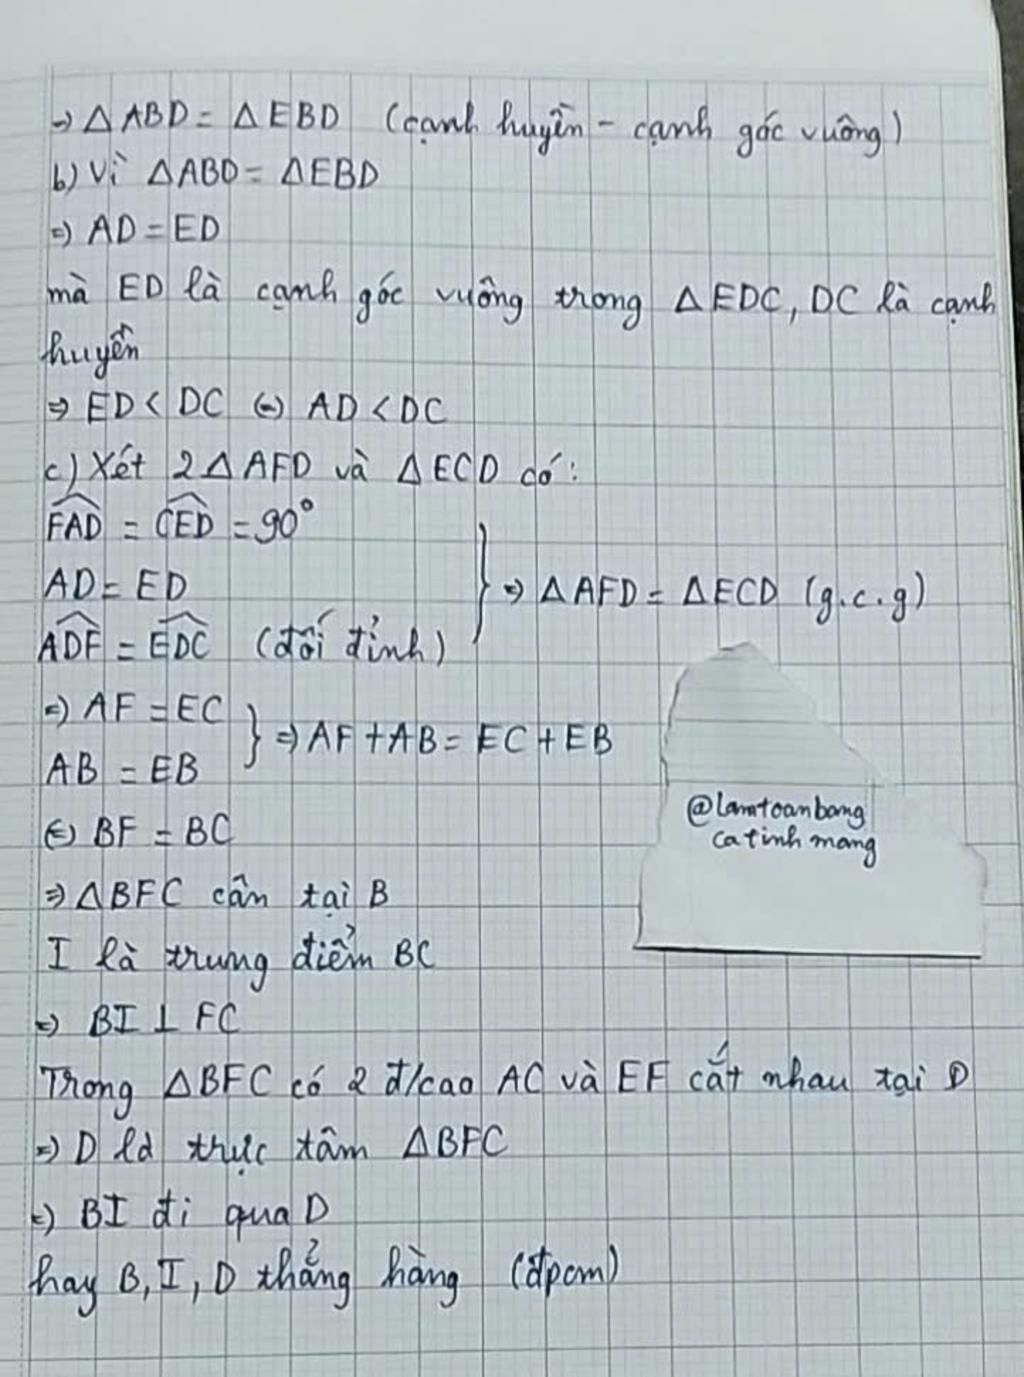 ⇒ △ABD = △EBD (cạnh huyền - cạnh góc vuông)
b) Vì △ABD = △EBD
⇒ AD = ED
mà ED là cạnh góc vuông trong △EDC, DC là cạnh
huyền
⇒ ED < DC ⇔ AD < DC
c) Xét 2 △AFD và △ECD có:
∠FAD = ∠CED = 90°
AD = ED
∠ADF = ∠EDC (đối đỉnh)
} ⇒ △AFD = △ECD (g.c.g)
⇒ AF = EC
AB = EB
} ⇒ AF + AB = EC + EB
⇔ BF = BC
⇒ △BFC cân tại B
I là trung điểm BC
⇒ BI ⊥ FC
Trong △BFC có 2 đ/cao AC và EF cắt nhau tại D
⇒ D là trực tâm △BFC
⇒ BI đi qua D
hay B, I, D thẳng hàng (đpcm)
@lamtoanbang
catinhmang